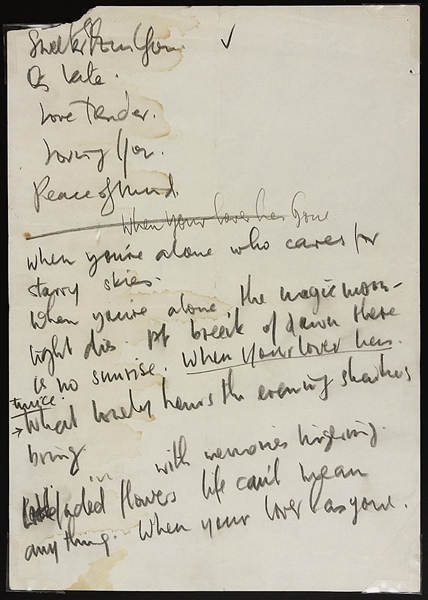 Sweeter Than You. ✓
As Late.
Love Tender.
Loving You.
Peace of mind.
When your lover has Gone
when you're alone who cares for
starry skies.
when you're alone the magic moon-
light dies. At break of dawn there
is no sunrise. When your lover has.
twice.
→ what lonely hours the evening shadows
bring
in with memories lingering.
faded flowers life can't mean
anything. When your lover has gone.